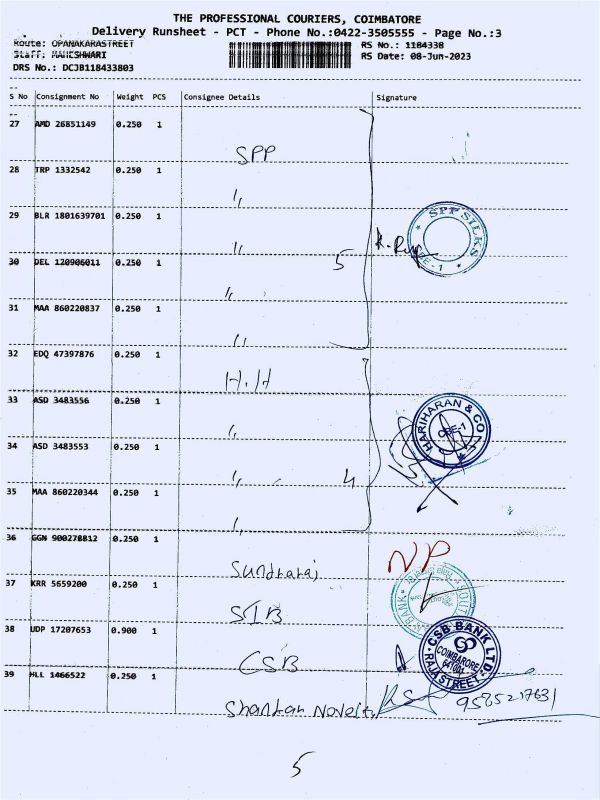 THE PROFESSIONAL COURIERS, COIMBATORE
Delivery Runsheet - PCT - Phone No.:0422-3505555 - Page No.:3
Route: OPANAKARASTREET
RS No.: 1184338
Staff: MAHESHWARI
RS Date: 08-Jun-2023
DRS No.: DCJB118433803
S No Consignment No Weight PCS Consignee Details Signature
27 AMD 26851149 0.250 1
SPP
28 TRP 1332542 0.250 1
",
29 BLR 1801639701 0.250 1
",
SPP SILKS
CBE-1
5
30 DEL 120906011 0.250 1
",
31 MAA 860220837 0.250 1
",
32 EDQ 47397876 0.250 1
H.H
33 ASD 3483556 0.250 1
",
HARIHARAN & CO
CBE-1
34 ASD 3483553 0.250 1
",
4
35 MAA 860220344 0.250 1
",
36 GGN 900278812 0.250 1
Sundharaj
NP
37 KRR 5659200 0.250 1
SIB
38 UDP 17207653 0.900 1
CSB
CSB BANK LTD.
COIMBATORE
641001
RAJA STREET
39 HLL 1466522 0.250 1
Shankar Novelty
9585217631
5